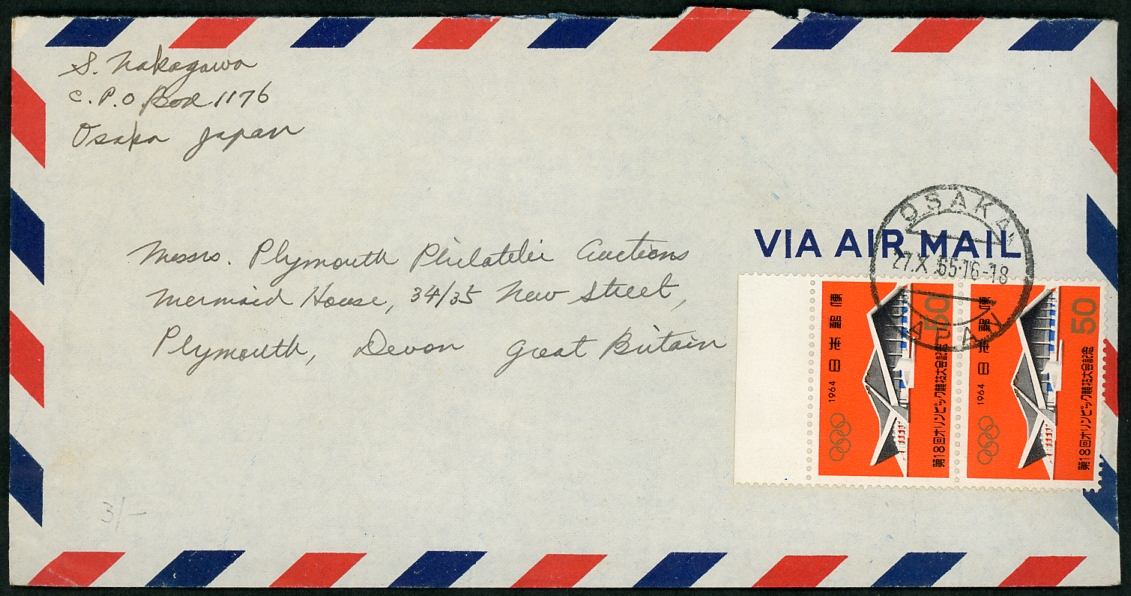 S. Nakagawa
C.P.O Box 1176
Osaka Japan
Messrs. Plymouth Philatelic Auctions
Mermaid House, 34/35 New Street,
Plymouth, Devon Great Britain
VIA AIR MAIL
OSAKA
27.X.65.16-18
JAPAN
日本郵便
1964
50
第18回オリンピック競技大会記念
日本郵便
1964
50
第18回オリンピック競技大会記念
3/-